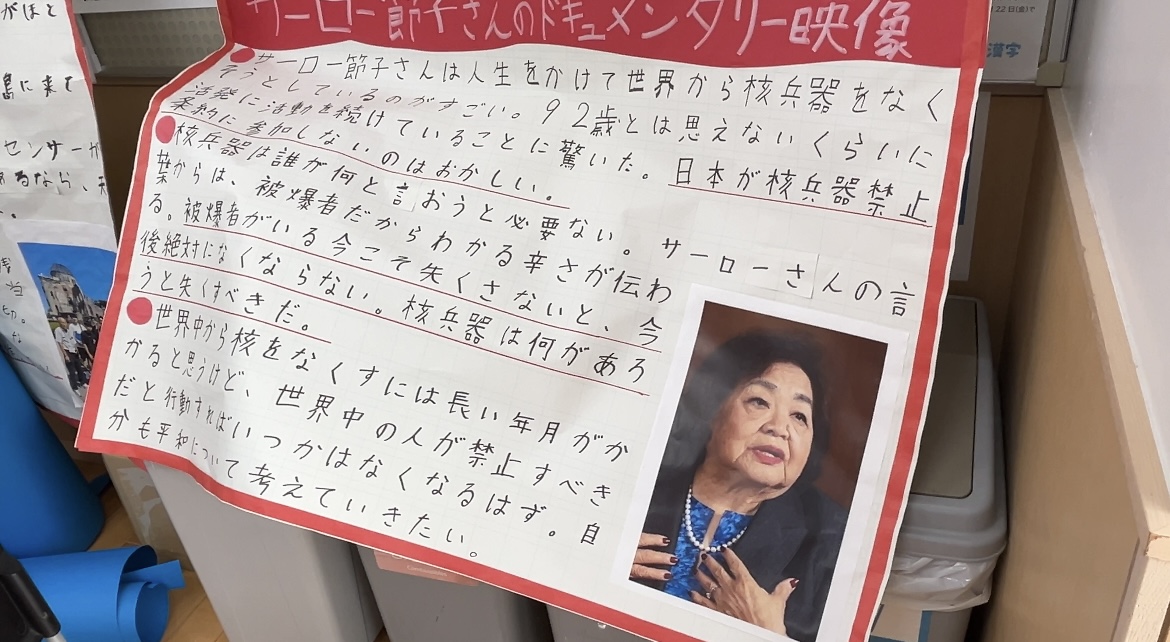 サーロー節子さんのドキュメンタリー映像
サーロー節子さんは人生をかけて世界から核兵器をなく
そうとしているのがすごい。92歳とは思えないくらいに
活発に活動を続けていることに驚いた。日本が核兵器禁止
条約に参加しないのはおかしい。
核兵器は誰が何と言おうと必要ない。サーローさんの言
葉からは、被爆者だからわかる辛さが伝わ
る。被爆者がいる今こそ失くさないと、今
後絶対になくならない。核兵器は何があろ
うと失くすべきだ。
世界中から核をなくすには長い年月がか
かると思うけど、世界中の人が禁止すべき
だと行動すればいつかはなくなるはず。自
分も平和について考えていきたい。
がほと
島に来て
センサーが
るなら、
22日(金)で
漢字